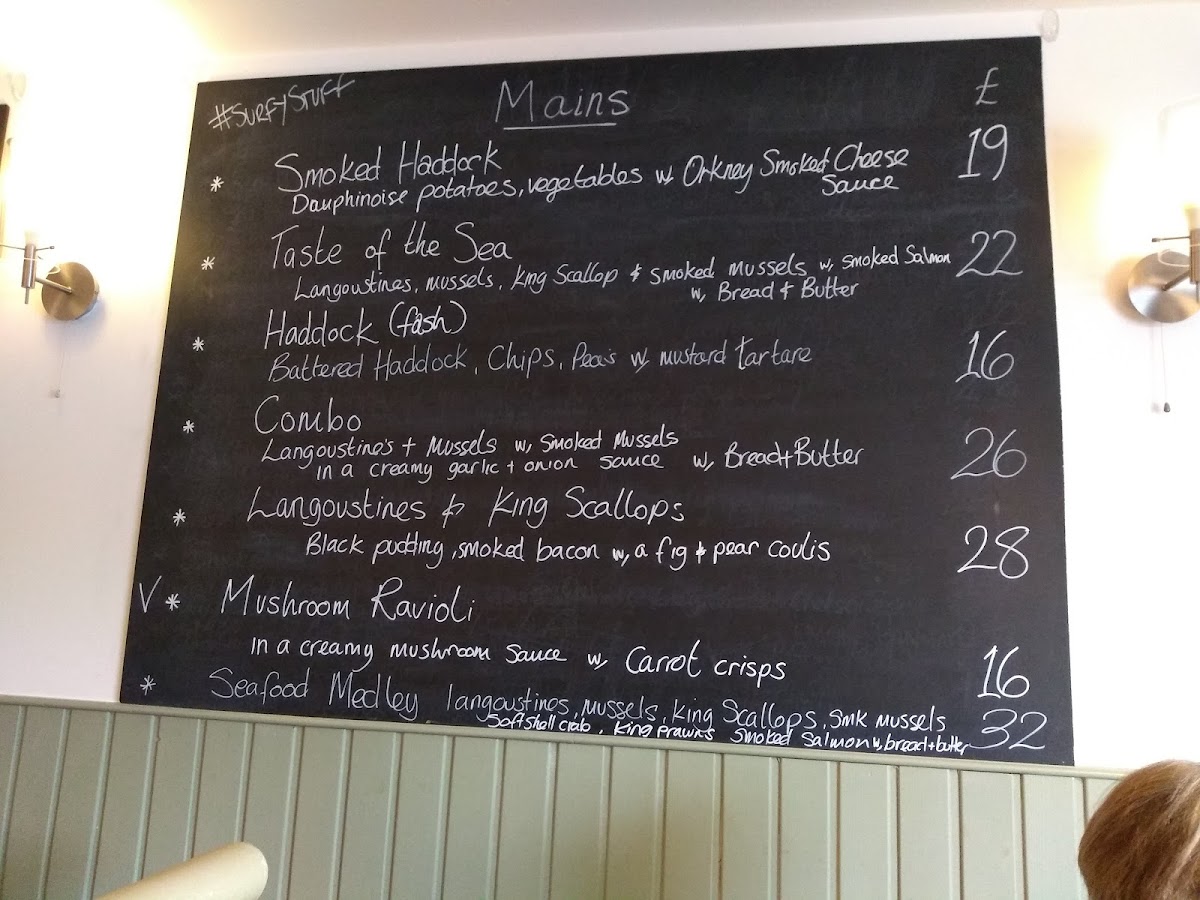 #SURFYSTUFF
Mains £
* Smoked Haddock 19
Dauphinoise potatoes, vegetables w, Orkney Smoked Cheese
Sauce
* Taste of the Sea 22
Langoustines, mussels, King Scallop & smoked mussels w, smoked Salmon
w, Bread & Butter
* Haddock (fàsh)
Battered Haddock, Chips, Pea's w, mustard tartare 16
* Combo
Langoustine's + Mussels w, Smoked Mussels
in a creamy garlic + onion sauce w, Bread+Butter 26
* Langoustines & King Scallops
Black pudding, smoked bacon w, a fig & pear coulis 28
V * Mushroom Ravioli
in a creamy mushroom sauce w, Carrot crisps 16
* Seafood Medley langoustines, mussels, King Scallops, Smk mussels 32
Softshell crab, King prawns smoked salmon w, bread+butter